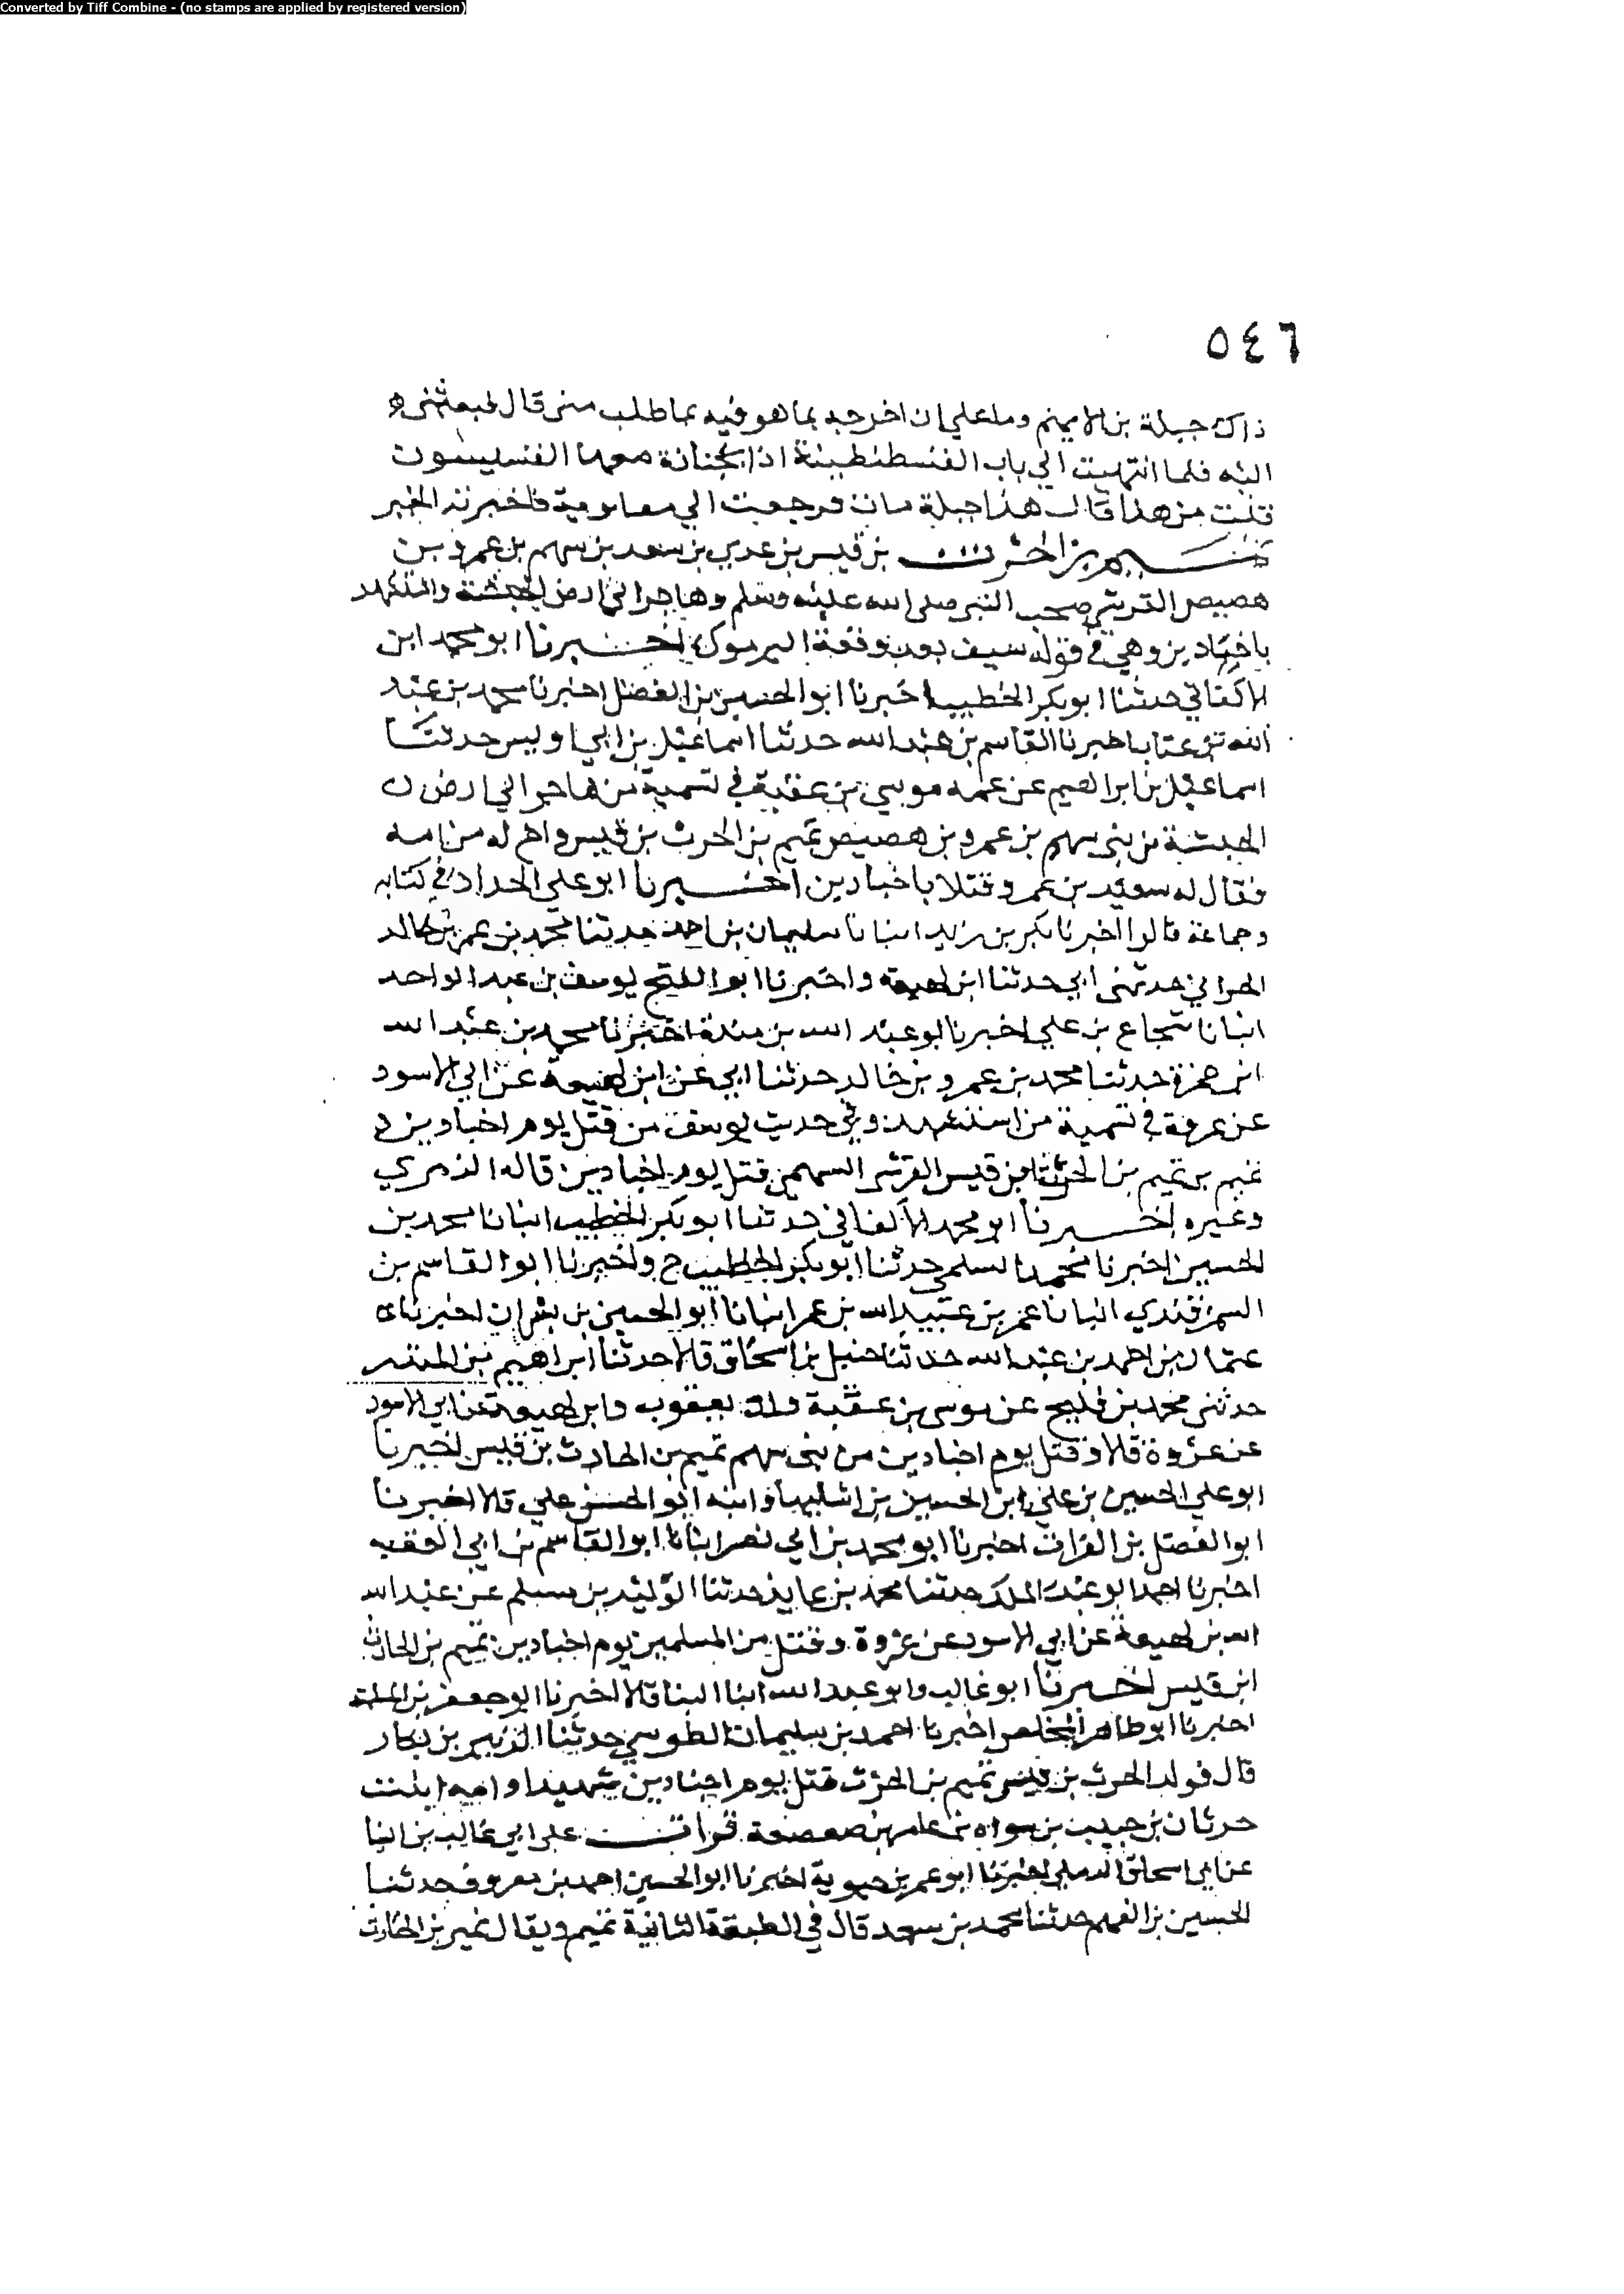 Converted by Tiff Combine - (no stamps are applied by registered version)
٥٤٦
ذاك جبلة بن الايهم وما علي ان اخرجه بما هو فيه بما طلب مني قال فبعثني
اليه فلما انتهيت الي باب القسطنطينة اذا بجنازة معها القسيسون
قلت من هذا قالت هذا جبلة مات فرجعت الي معاوية فاخبرته الخبر
تميم بن الحرث بن قيس بن عدي بن سعد بن سهم بن عمرو بن
هصيص القرشي صحب النبي صلى الله عليه وسلم وهاجر الي ارض الحبشة واستشهد
باجنادين وهي في قول سيف بعد وقعة اليرموك اخبرنا ابو محمد ابن
الاكفاني حدثنا ابو بكر الخطيب اخبرنا ابو الحسين بن الفضل اخبرنا محمد بن عبد
الله بن عتاب اخبرنا القاسم بن عبد الله حدثنا اسماعيل بن ابي اويس حدثنا
اسماعيل بن ابراهيم عن عمه موسي بن عقبة في تسمية من هاجر الي ارض
الحبشة من بني سهم بن عمرو بن هصيص تميم بن الحرث بن قيس واخ له من امه
فقال له سعيد بن عمرو قتلا باجنادين اخبرنا ابو علي الحداد في كتابه
وجماعة قالوا اخبرنا بكر بن زيد انبانا سليمان بن احمد حدثنا محمد بن عمرو بن خالد
الحراني حدثني ابي حدثنا ابن لهيعة واخبرنا ابو الفتح يوسف بن عبد الواحد
انبانا شجاع بن علي اخبرنا ابو عبد الله بن مندة اخبرنا محمد بن عبد الله
ابن حمزة حدثنا محمد بن عمرو بن خالد حدثنا ابي عن ابن لهيعة عن ابي الاسود
عن عروة في تسمية من استشهد وفي حديث يوسف من قتل يوم اجنادين
تميم بن الحرث ابن قيس القرشي السهمي قتل يوم اجنادين قاله الزهري
وغيره اخبرنا ابو محمد الاكفاني حدثنا ابو بكر الخطيب انبانا محمد بن
الحسين اخبرنا السلمي حدثنا ابو بكر الخطيب ح واخبرنا ابو القاسم بن
السمرقندي انبانا عمر بن عبيد الله بن عمر انبانا ابو الحسين بن بشران اخبرنا
عثمان بن احمد بن عبد الله حدثنا حنبل بن اسحاق قالا حدثنا ابراهيم بن المنذر
حدثني محمد بن فليح عن موسى بن عقبة يعقوب وابن لهيعة عن ابي الاسود
عن عروة قالا وقتل يوم اجنادين من بني سهم تميم بن الحارث بن قيس اخبرنا
ابو علي الحسين بن علي ابن الحسين بن اشليها وابنه ابو الحسن علي قالا اخبرنا
ابو الفضل بن الفرات اخبرنا ابو محمد بن ابي نصر انبانا ابو القاسم بن ابي العقب
اخبرنا احمد ابو عبد الملك حدثنا محمد بن عايذ حدثنا الوليد بن مسلم عن عبد الله
الله بن لهيعة عن ابي الاسود عن عروة وقتل من المسلمين يوم اجنادين تميم بن الحارث
ابن قيس اخبرنا ابو غالب وابو عبد الله ابنا البنا قالا اخبرنا ابو جعفر بن المسلمة
اخبرنا ابو طاهر المخلص اخبرنا احمد بن سليمان الطوسي حدثنا الزبير بن بكار
قال فولد الحرث بن قيس تميم بن الحرث قتل يوم اجنادين شهيدا وامه ابنت
حرثان بن حبيب بن سواه بن عامر بن صعصعة قرات على ابي غالب بن البنا
عن ابي اسحاق البرمكي اخبرنا ابو عمر بن حيوية اخبرنا ابو الحسين احمد بن معروف حدثنا
الحسين بن الفهم حدثنا محمد بن سعد قال في الطبقة الثانية تميم ويقال نمير بن الحارث